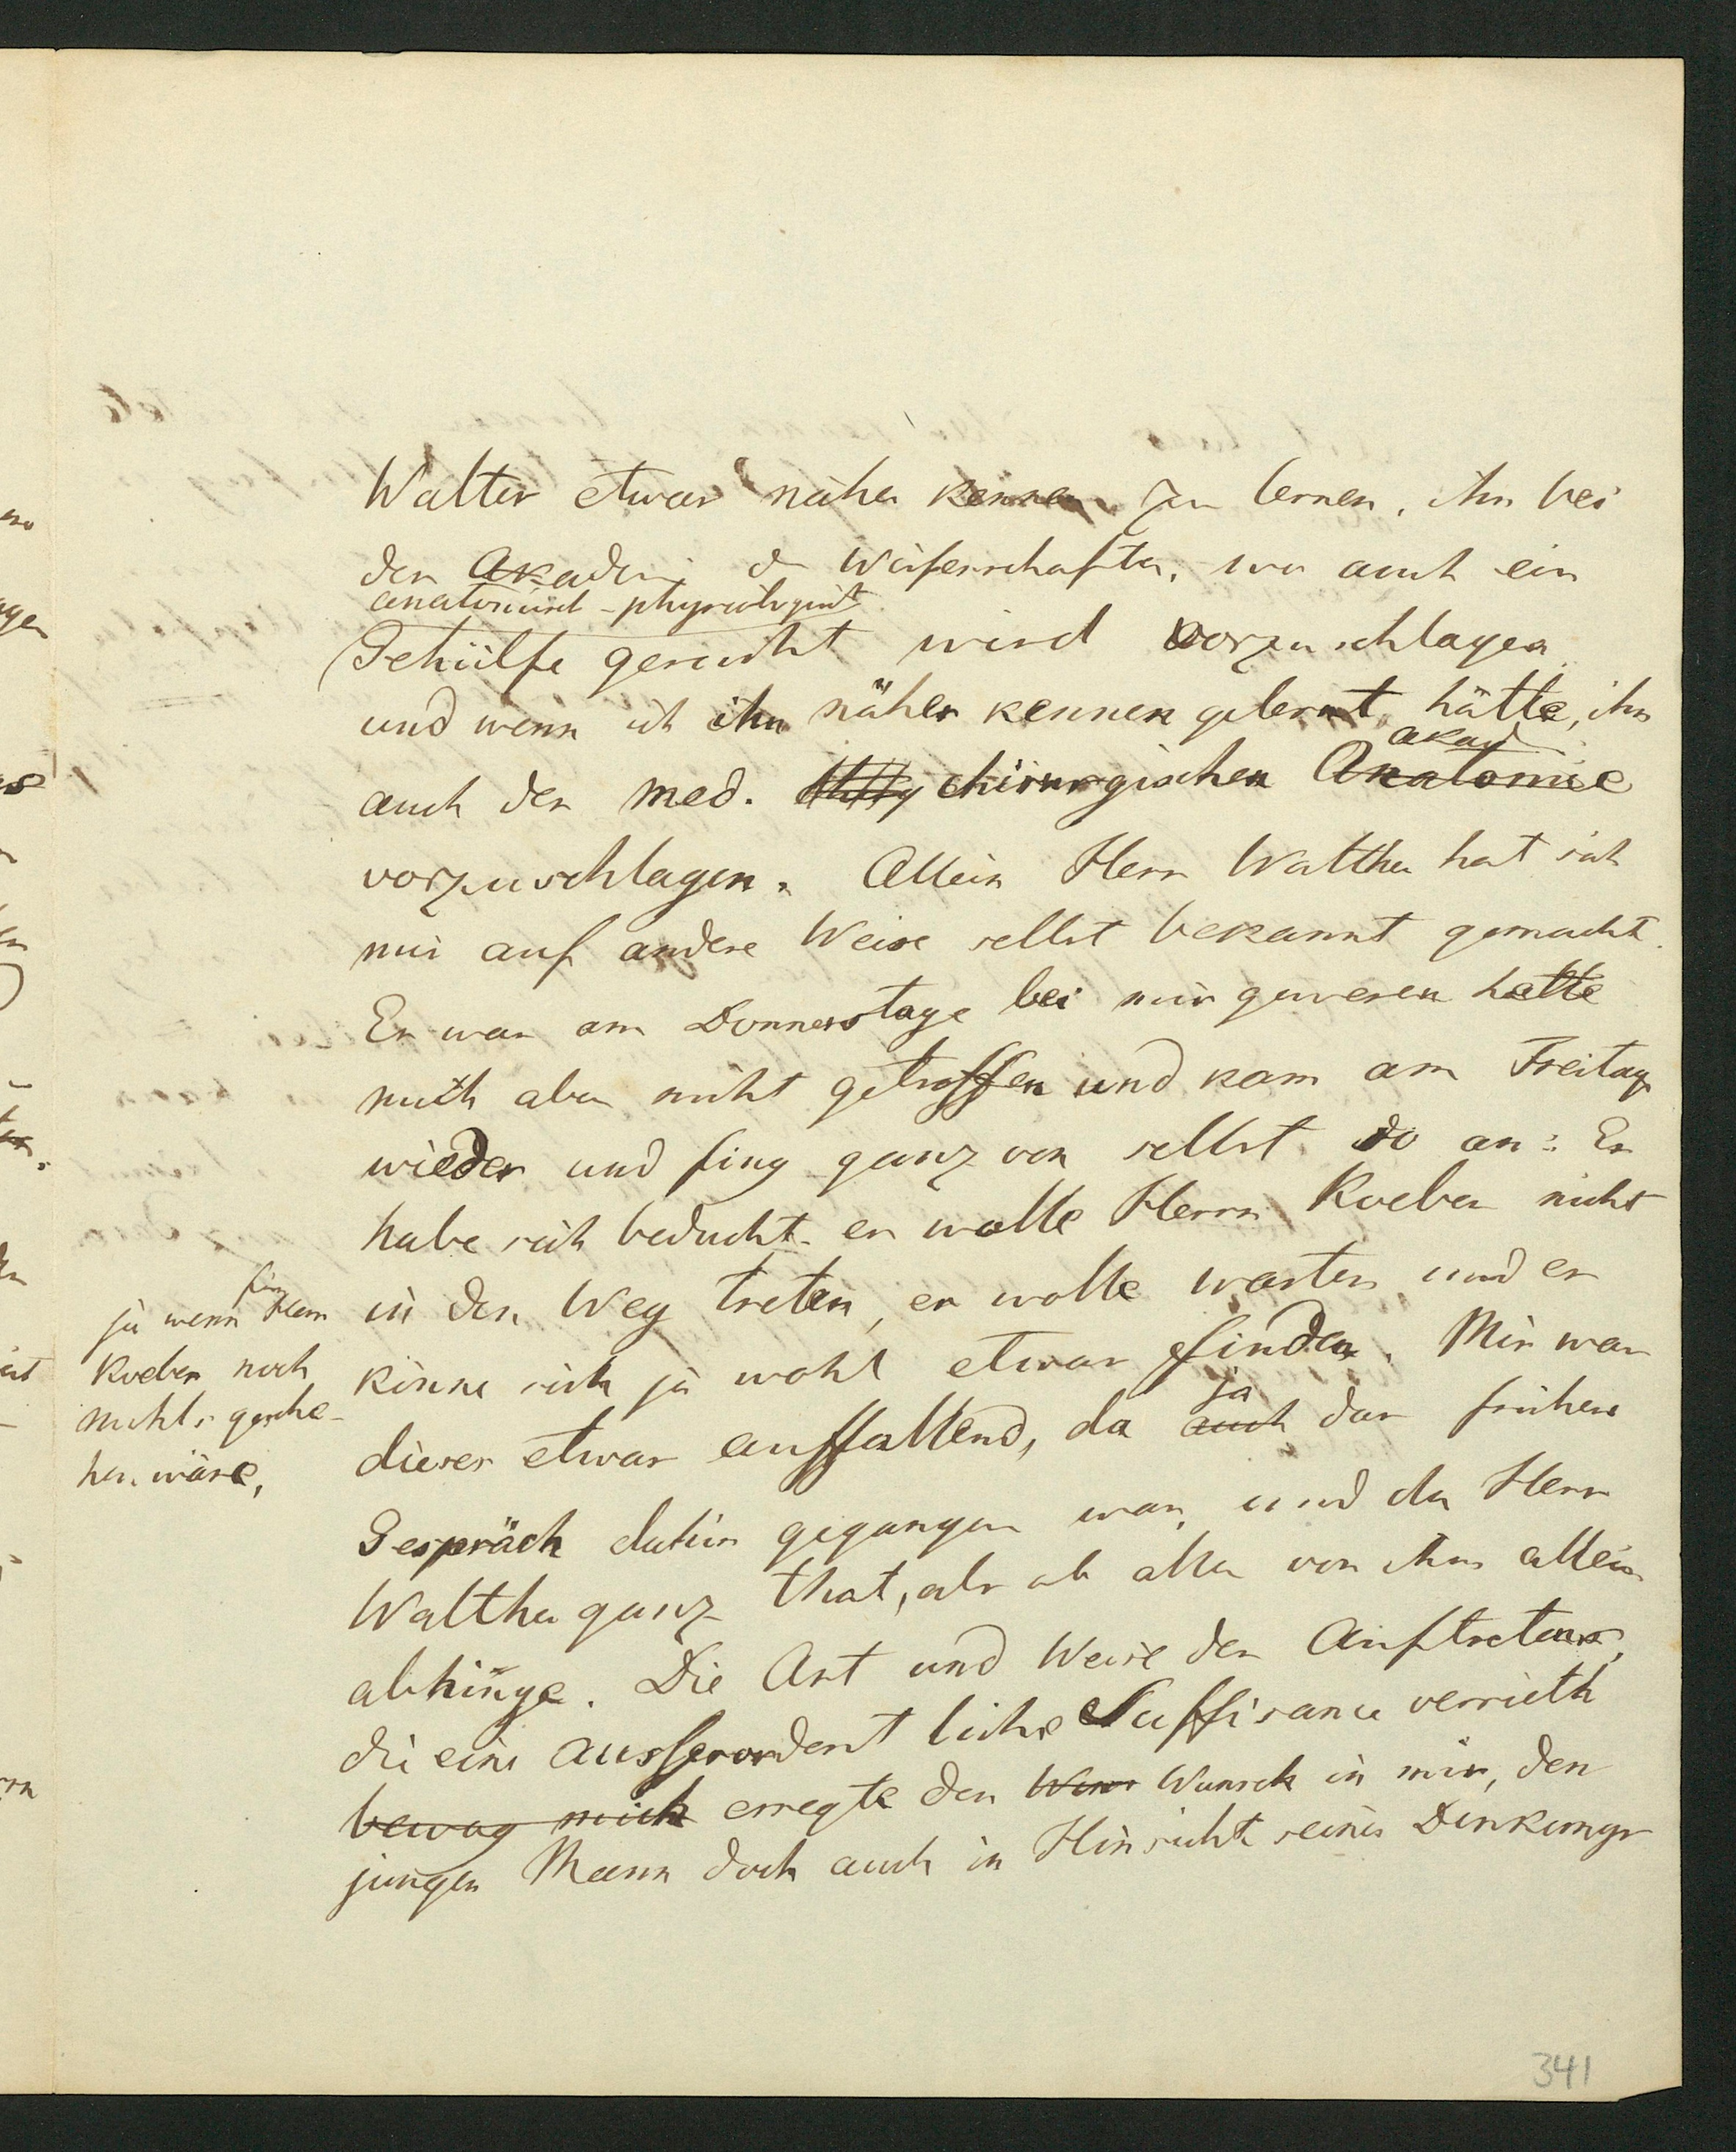 Walter etwas näher kennen zu lernen, ihn bei
der Akademi d Wissenschaften, wo auch ein
anatomisch-physiologischer
Gehülfe gesucht wird vorzuschlagen
und wenn ich ihn näher kennen gelernt hätte, ihn
akad
auch der med. chirurgischen Anatomie
vorzuschlagen. Allein Herr Walther hat sich
mir auf andere Weise selbst bekannt gemacht.
Er war am Donnerstage bei mir gewesen hatte
mich aber nicht getroffen und kam am Freitag
wieder und fing ganz von selbst so an: Er
habe sich bedacht er wolle Herrn Koeber nicht
in den Weg treten, er wolle warten und er
könne sich ja wohl etwas finden. Mir war
ja
dieses etwas auffallend, da auch das frühere
Gespräch dahin gegangen war, und da Herr
Walther ganz that, als ob alles von ihm allein
abhinge. Die Art und Weise des Auftretens,
die eine ausserordentliche Suffisance verrieth
bewog mich erregte den Wuns Wunsch in mir, den
jungen Mann doch auch in Hinsicht seines Denkungs
für
ja wenn Herrn
Koeber noch
nichts gesche-
hen wäre,
341